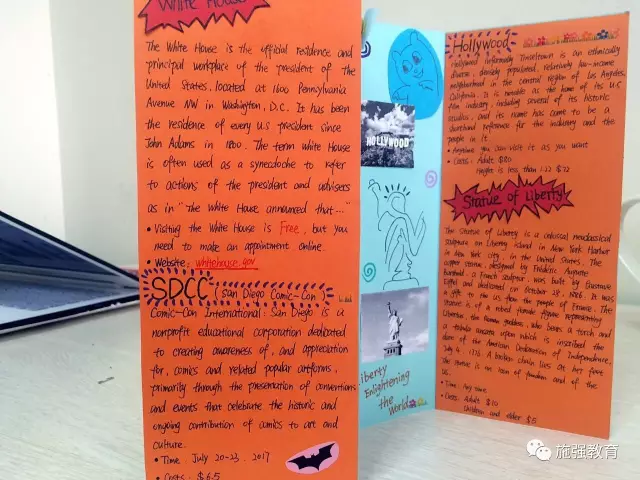 White House
The White House is the official residence and
principal workplace of the president of the
United States, located at 1600 Pennsylvania
Avenue NW in Washington, D.C. It has been
the residence of every U.S. president since
John Adams in 1800. The term white House
is often used as a synecdoche to refer
to actions of the president and advisers
as in "The White House announced that..."
• Visiting the White House is Free, but you
need to make an appointment online.
• Website: whitehouse.gov
SDCC (San Diego Comic-Con)
Comic-Con International: San Diego is a
nonprofit educational corporation dedicated
to creating awareness of, and appreciation
for, comics and related popular artforms,
primarily through the presentation of conventions
and events that celebrate the historic and
ongoing contribution of comics to art and
culture.
• Time: July 20-23, 2017
• Costs: $65
HOLLYWOOD
Liberty
Enlightening
the World
Hollywood
Hollywood informally Tinseltown is an ethnically
diverse, densely populated, relatively low-income
neighborhood in the central region of Los Angeles,
California. It is notable as the home of its U.S
film industry, including several of its historic
studios, and its name has come to be a
shorthand reference for the industry and the
people in it.
• Anytime you can visit it as you want
• Costs: Adult $80
Height is less than 1.22 $72
Statue of Liberty
The Statue of Liberty is a colossal neoclassical
sculpture on Liberty island in New York Harbor
in New York city, in the United States. The
copper statue, designed by Frédéric Auguste
Bartholdi, a French sculptor, was built by Gustave
Eiffel and dedicated on October 28, 1886. It was
a gift to the US from the people of France. The
statue is of a robed female figure representing
Libertas, the Roman goddess, who bears a torch and
a tabula ansata upon which is inscribed the
date of the American Declaration of Independence,
July 4, 1776. A broken chain lies at her feet.
The statue is an icon of freedom and of the
US.
• Time: Any time
• Costs: Adult $10
Children and elder $5
施强教育